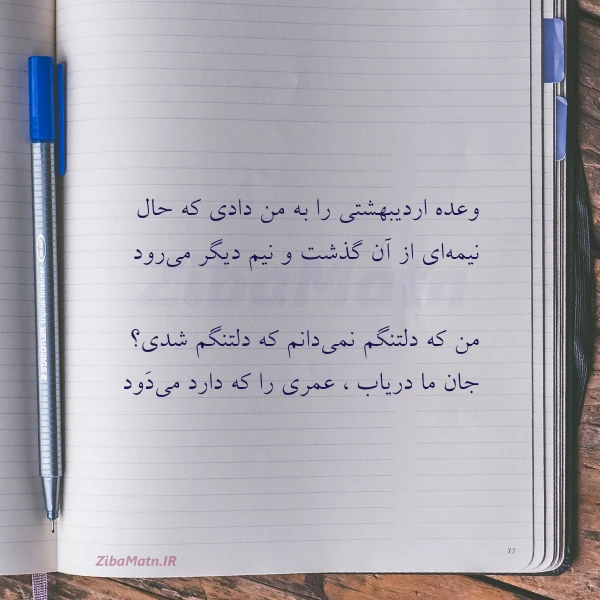 وعده اردیبهشتی را به من دادی که حال
نیمه‌ای از آن گذشت و نیم دیگر می‌رود
من که دلتنگم نمی‌دانم که دلتنگم شدی؟
جان ما دریاب ، عمری را که دارد می‌دَود
ZibaMatn.IR